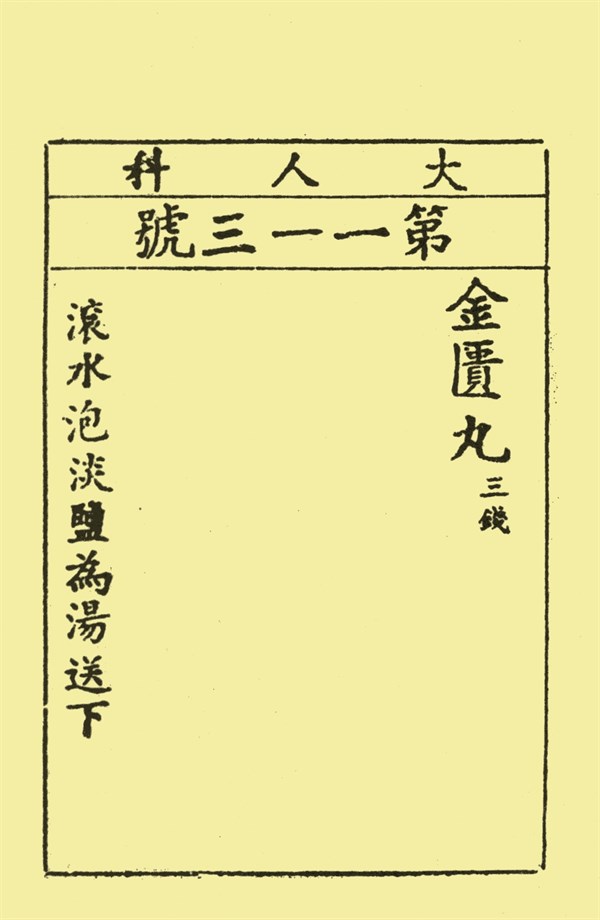 大人科
第一一三號
金匱丸 三錢
滾水泡淡鹽為湯送下